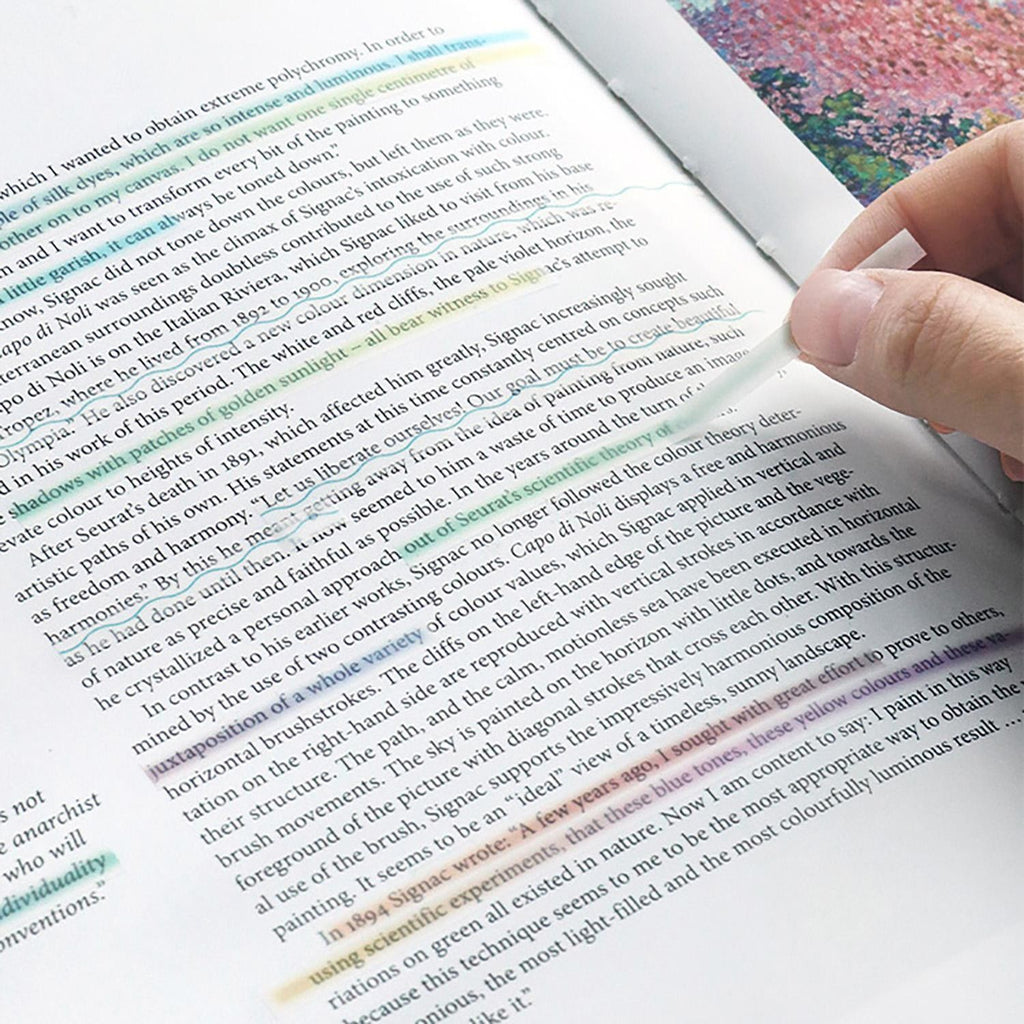 which I wanted to obtain extreme polychromy. In order to
of silk dyes, which are so intense and luminous. I shall trans-
other on to my canvas. I do not want one single centimetre of
and I want to transform every bit of the painting to something
little garish, it can always be toned down."
Signac did not tone down the colours, but left them as they were.
di Noli was seen as the climax of Signac's intoxication with colour.
surroundings doubtless contributed to the use of such strong
di Noli is on the Italian Riviera, which Signac liked to visit from his base
where he lived from 1892 to 1900, exploring the surroundings in his
Olympia." He also discovered a new colour dimension in nature, which was re-
in his work of this period. The white and red cliffs, the pale violet horizon, the
shadows with patches of golden sunlight – all bear witness to Signac's attempt to
colour to heights of intensity.
After Seurat's death in 1891, which affected him greatly, Signac increasingly sought
artistic paths of his own. His statements at this time constantly centred on concepts such
as freedom and harmony. "Let us liberate ourselves! Our goal must be to create beautiful
harmonies." By this he meant getting away from the idea of painting from nature, such
as he had done until then. It now seemed to him a waste of time to produce an image
of nature as precise and faithful as possible. In the years around the turn of
he crystallized a personal approach out of Seurat's scientific theory of
In contrast to his earlier works, Signac no longer followed the colour theory deter-
mined by the use of two contrasting colours. Capo di Noli displays a free and harmonious
juxtaposition of a whole variety of colour values, which Signac applied in vertical and
horizontal brushstrokes. The cliffs on the left-hand edge of the picture and the vege-
tation on the right-hand side are reproduced with vertical strokes in accordance with
their structure. The path, and the calm, motionless sea have been executed in horizontal
brush movements. The sky is painted on the horizon with little dots, and towards the
foreground of the picture with diagonal strokes that cross each other. With this structur-
al use of the brush, Signac supports the impressively harmonious composition of the
painting. It seems to be an "ideal" view of a timeless, sunny landscape.
In 1894 Signac wrote: "A few years ago, I sought with great effort to prove to others,
using scientific experiments, that these blue tones, these yellow colours and these va-
riations on green all existed in nature. Now I am content to say: I paint in this way
because this technique seems to me to be the most appropriate way to obtain the
onious, the most light-filled and the most colourfully luminous result ...
like it."
not
anarchist
who will